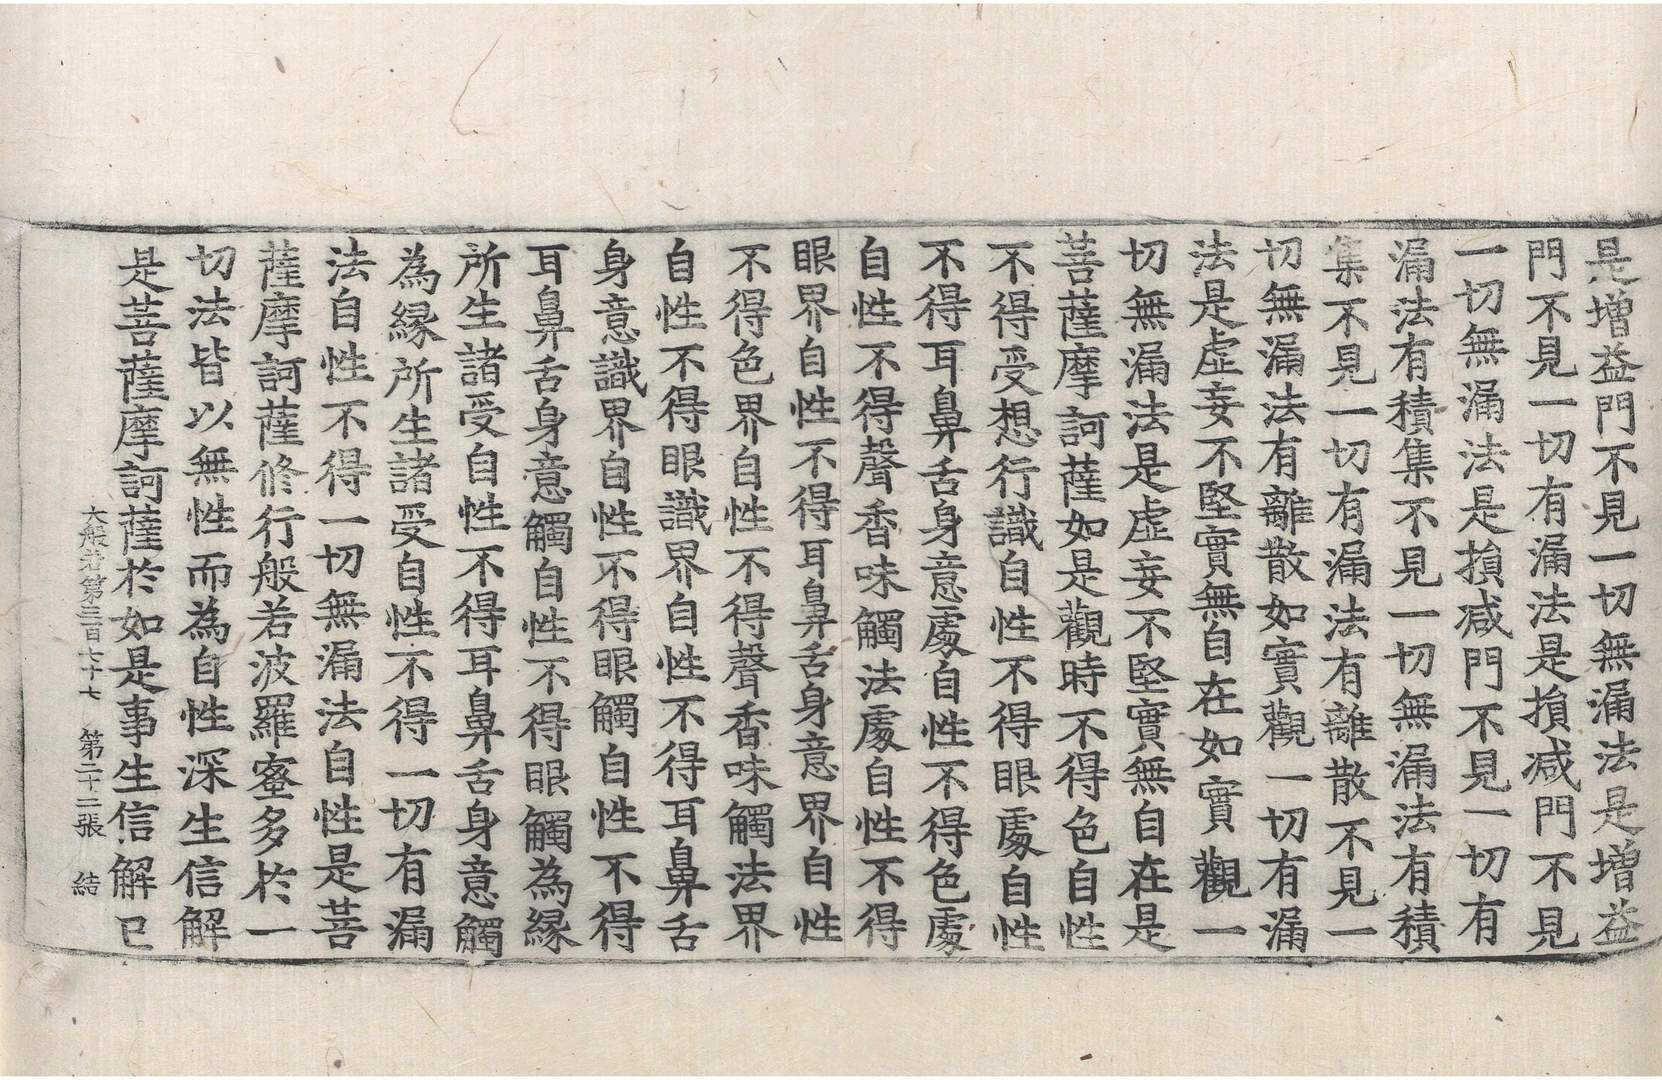 是增益門不見一切無漏法是增益
門不見一切有漏法是損减門不見
一切無漏法是損减門不見一切有
漏法有積集不見一切無漏法有積
集不見一切有漏法有離散不見一
切無漏法有離散如實觀一切有漏
法是虛妄不堅實無自在如實觀一
切無漏法是虛妄不堅實無自在是
菩薩摩訶薩如是觀時不得色自性
不得受想行識自性不得眼處自性
不得耳鼻舌身意處自性不得色處
自性不得聲香味觸法處自性不得
眼界自性不得耳鼻舌身意界自性
不得色界自性不得聲香味觸法界
自性不得眼識界自性不得耳鼻舌
身意識界自性不得眼觸自性不得
耳鼻舌身意觸自性不得眼觸為緣
所生諸受自性不得耳鼻舌身意觸
為緣所生諸受自性不得一切有漏
法自性不得一切無漏法自性是菩
薩摩訶薩修行般若波羅蜜多於一
切法皆以無性而為自性深生信解
是菩薩摩訶薩於如是事生信解已
大般若第三百七十七 第二十二張 結